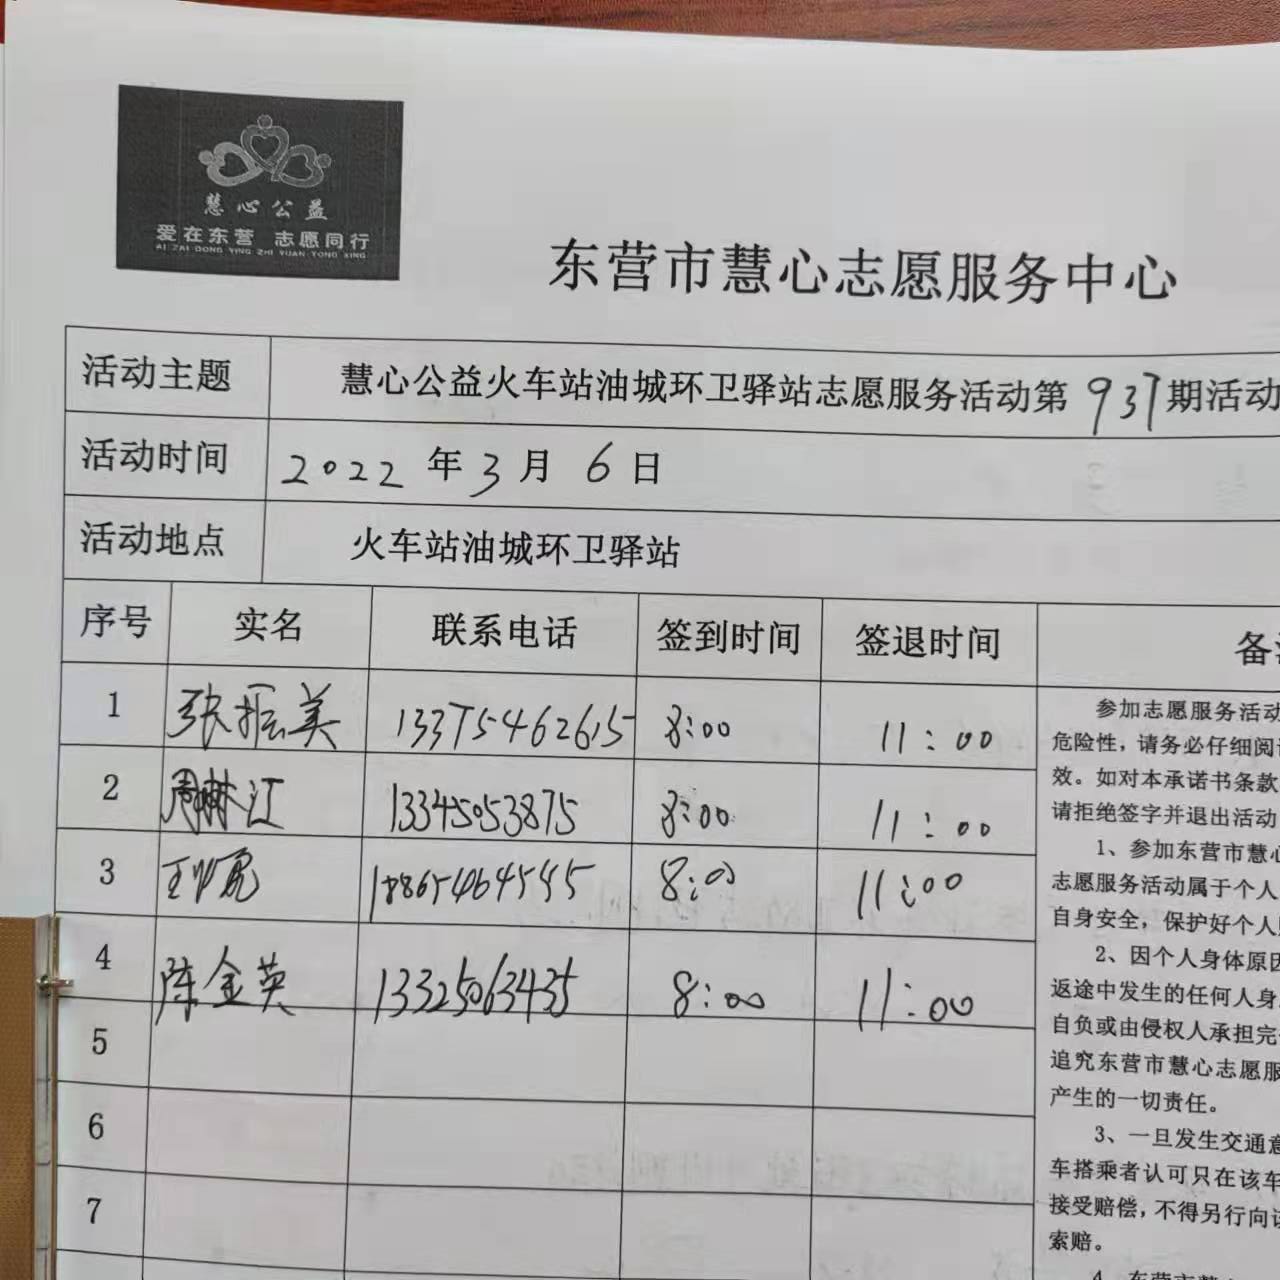 慧心公益
爱在东营 志愿同行
AI ZAI DONG YING ZHI YUAN TONG XING
东营市慧心志愿服务中心
活动主题 慧心公益火车站油城环卫驿站志愿服务活动第937期活动
活动时间 2022年3月6日
活动地点 火车站油城环卫驿站
序号 实名 联系电话 签到时间 签退时间 备
1 张振美 13375462615 8:00 11:00
2 周林江 13345053875 8:00 11:00
3 王 18865464545 8:00 11:00
4 陈金英 13325063435 8:00 11:00
5
6
7
参加志愿服务活动
危险性，请务必仔细阅
效。如对本承诺书条款
请拒绝签字并退出活动
1、参加东营市慧心
志愿服务活动属于个人
自身安全，保护好个人
2、因个人身体原因
返途中发生的任何人身
自负或由侵权人承担完
追究东营市慧心志愿服
产生的一切责任。
3、一旦发生交通意
车搭乘者认可只在该车
接受赔偿，不得另行向该
索赔。
4、东营市慧